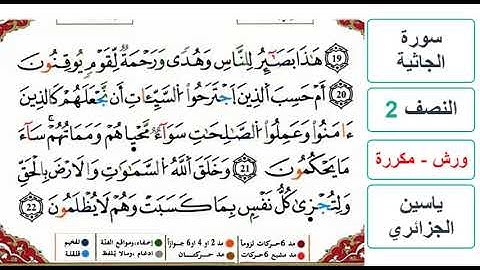 ⑲ هَٰذَا بَصَٰٓئِرُ لِلنَّاسِ وَهُدٗى وَرَحۡمَةٞ لِّقَوۡمٖ يُوقِنُونَ
⑳ أَمۡ حَسِبَ ٱلَّذِينَ ٱجۡتَرَحُواْ ٱلسَّيِّـَٔاتِ أَن نَّجۡعَلَهُمۡ كَٱلَّذِينَ
ءَامَنُواْ وَعَمِلُواْ ٱلصَّٰلِحَٰتِ سَوَآءٞ مَّحۡيٜاهُمۡ وَمَمَاتُهُمۡۚ سَآءَ
مَا يَحۡكُمُونَ ㉑ وَخَلَقَ ٱللَّهُ ٱلسَّمَٰوَٰتِ وَٱلۡأَرۡضَ بِٱلۡحَقِّ
وَلِتُجۡزَىٰ كُلُّ نَفۡسِۢ بِمَا كَسَبَتۡ وَهُمۡ لَا يُظۡلَمُونَ ㉒
مد 6 حركات لزوما
مد 2 أو 4 أو 6 جوازا
إخفاء، ومواقع الغنة
تفخيم
مد مشبع 6 حركات
مد حركتان
ادغام، ومالا يلفظ
قلقلة
سورة
الجاثية
النصف 2
ورش - مكررة
ياسين
الجزائري